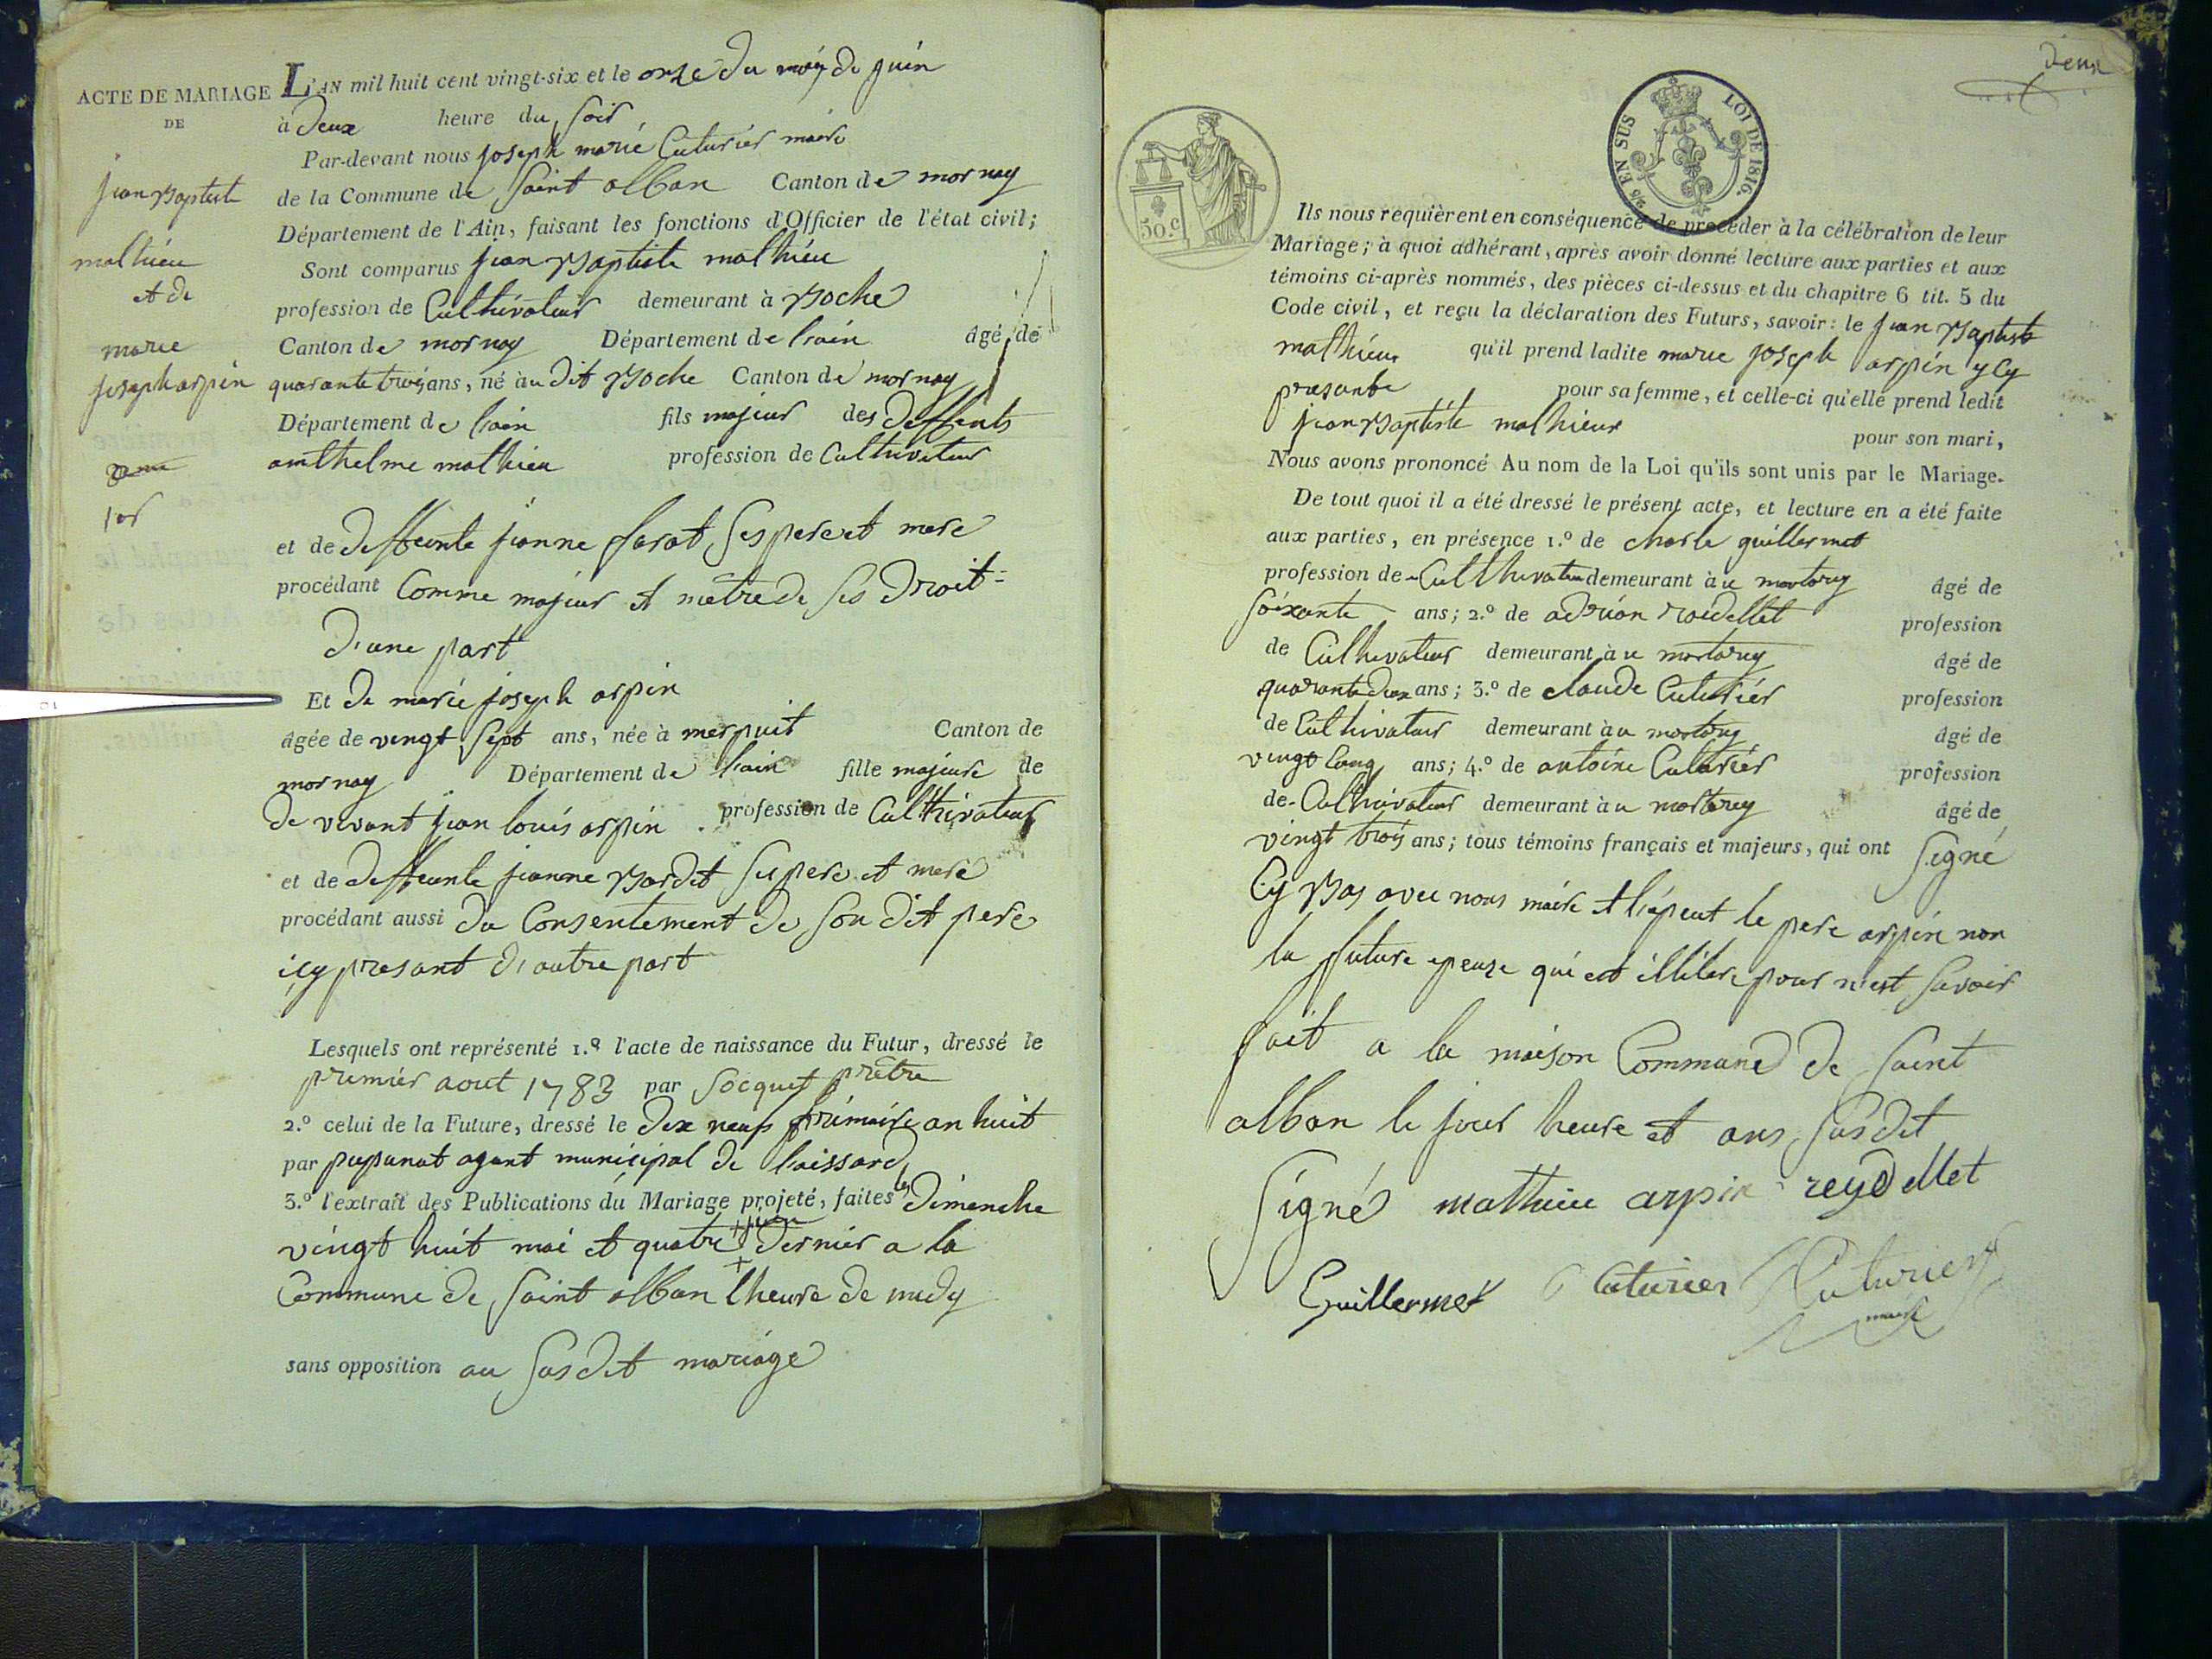 ACTE DE MARIAGE
DE
jean Baptiste
mathieu
et de
marie
joseph arpin
1er
L'AN mil huit cent vingt-six et le onze du mois de juin
à deux heure du soir
Par-devant nous joseph marie Cuturier maire
de la Commune de Saint alban Canton de mornay
Département de l'Ain, faisant les fonctions d'Officier de l'état civil;
Sont comparus jean Baptiste mathieu
profession de Culthivateur demeurant à Boche
Canton de mornay Département de l'ain âgé de
quarante trois ans, né à au dit Boche Canton de mornay
Département de l'ain fils majeur des deffents
anthelme mathieu profession de Culthivateur
et de deffeunte jeanne farat ses pere et mere
procédant Comme majeur et metre de ses droit
d'une part
Et de marie joseph arpin
âgée de vingt sept ans, née à merpuit Canton de
mornay Département de l'ain fille majeure de
de vivant jean louis arpin profession de Culthivateur
et de deffeunte jeanne Bardet ses pere et mere
procédant aussi du Consentement de son dit pere
icy presant d'autre part
Lesquels ont représenté 1.º l'acte de naissance du Futur, dressé le
premier aout 1783 par Socquet prêtre
2.º celui de la Future, dressé le dix neuf frimaire an huit
par pupunat agant municipal de laissard
3.º l'extrait des Publications du Mariage projeté, faites les dimenche
vingt huit mai et quatre + juin dernier a la
Commune de Saint alban l'heure de midy
sans opposition au susdit mariage
deux
30.c
LOI DE 1816.
EN SUS
Ils nous requièrent en conséquence de procéder à la célébration de leur
Mariage; à quoi adhérant, après avoir donné lecture aux parties et aux
témoins ci-après nommés, des pièces ci-dessus et du chapitre 6 tit. 5 du
Code civil, et reçu la déclaration des Futurs, savoir: le jean Baptiste
mathieu qu'il prend ladite marie joseph arpin y cy
presante pour sa femme, et celle-ci qu'elle prend ledit
jean Baptiste mathieu pour son mari,
Nous avons prononcé Au nom de la Loi qu'ils sont unis par le Mariage.
De tout quoi il a été dressé le présent acte, et lecture en a été faite
aux parties, en présence 1.º de charle guillermet
profession de Culthivateur demeurant à u mortarey âgé de
soixante ans; 2.º de adrian reidellet profession
de Culthivateur demeurant à u mortarey âgé de
quarante deux ans; 3.º de claude Cuturier profession
de Culthivateur demeurant à u mortarey âgé de
vingt cinq ans; 4.º de antoine Cuturier profession
de Culthivateur demeurant à u mortarey âgé de
vingt trois ans; tous témoins français et majeurs, qui ont signé
Cy Bas avec nous maire et l'epeut le pere arpin non
la future epeuze qui est illitere pour n'est savoir
fait a la maison Commune de Saint
alban le jour heure et ans susdit
signés mathieu arpin reydellet
Guillermet C Cuturier Cuturier
maire